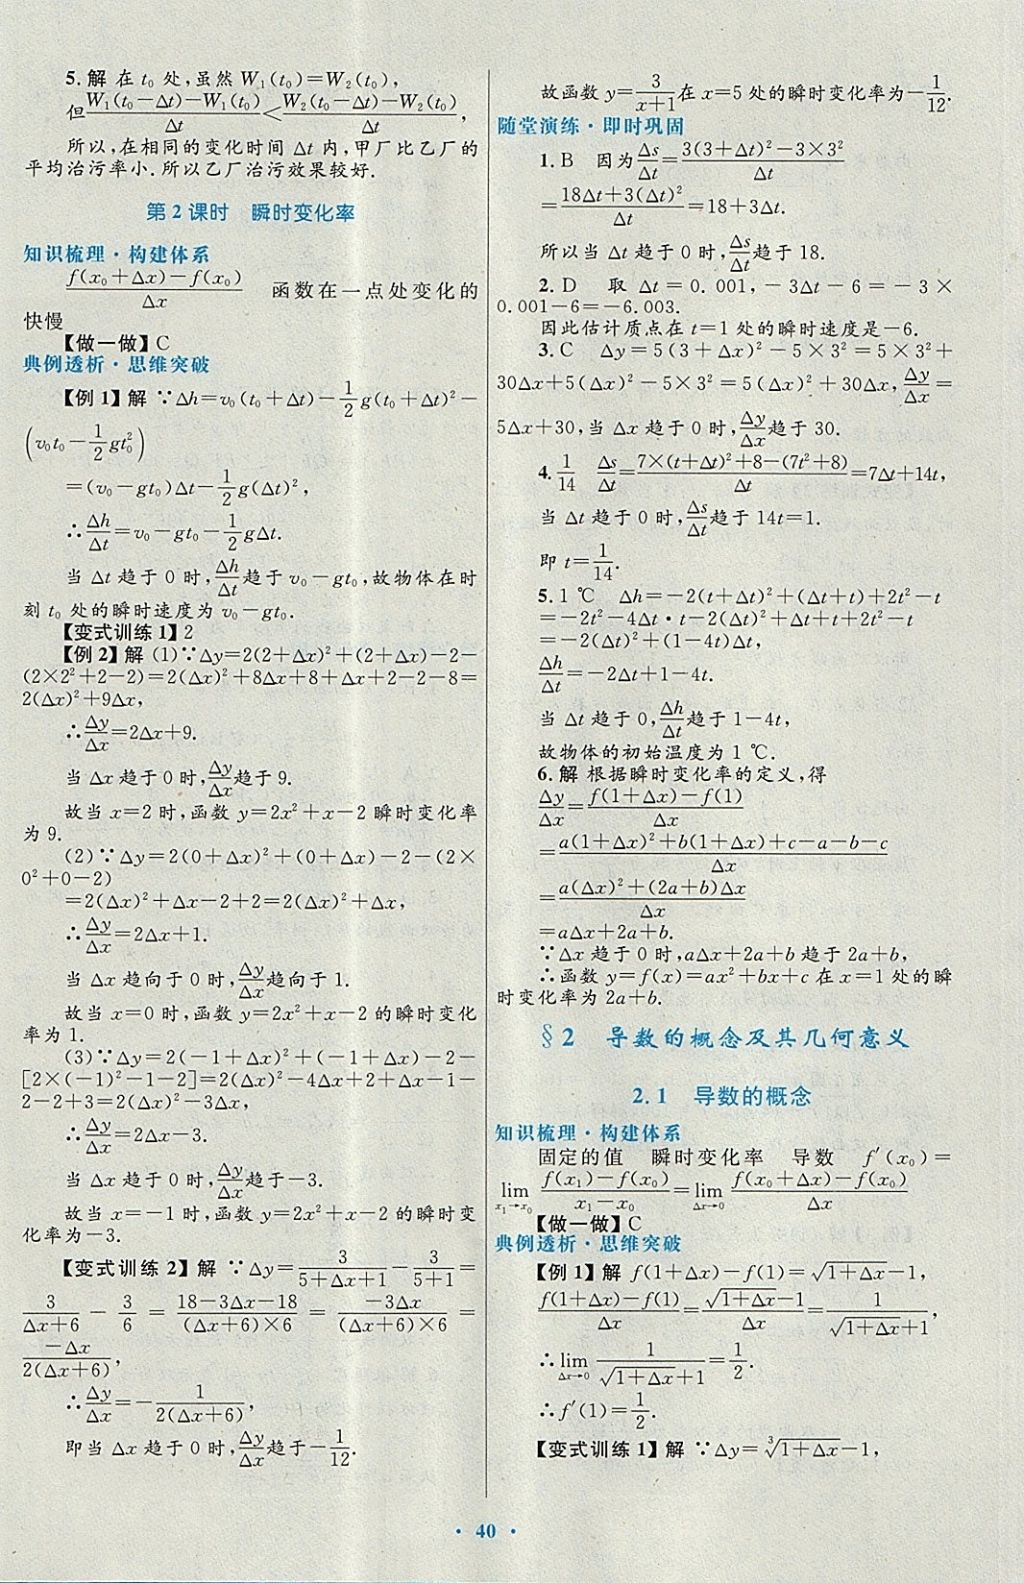 5.解 在 t₀ 处,虽然 W₁(t₀)=W₂(t₀),
但 (W₁(t₀-Δt)-W₁(t₀))/Δt < (W₂(t₀-Δt)-W₂(t₀))/Δt,
所以,在相同的变化时间 Δt 内,甲厂比乙厂的
平均治污率小.所以乙厂治污效果较好.
第2课时 瞬时变化率
知识梳理·构建体系
(f(x₀+Δx)-f(x₀))/Δx 函数在一点处变化的
快慢
【做一做】C
典例透析·思维突破
【例1】解 ∵Δh=v₀(t₀+Δt)-1/2 g(t₀+Δt)²-
(v₀t₀-1/2 gt₀²)
=(v₀-gt₀)Δt-1/2 g(Δt)²,
∴Δh/Δt=v₀-gt₀-1/2 gΔt.
当 Δt 趋于 0 时,Δh/Δt 趋于 v₀-gt₀,故物体在时
刻 t₀ 处的瞬时速度为 v₀-gt₀.
【变式训练1】2
【例2】解 (1)∵Δy=2(2+Δx)²+(2+Δx)-2-
(2×2²+2-2)=2(Δx)²+8Δx+8+Δx+2-2-8=
2(Δx)²+9Δx,
∴Δy/Δx=2Δx+9.
当 Δx 趋于 0 时,Δy/Δx 趋于 9.
故当 x=2 时,函数 y=2x²+x-2 瞬时变化率
为 9.
(2)∵Δy=2(0+Δx)²+(0+Δx)-2-(2×
0²+0-2)
=2(Δx)²+Δx-2+2=2(Δx)²+Δx,
∴Δy/Δx=2Δx+1.
当 Δx 趋向于 0 时,Δy/Δx 趋向于 1.
故当 x=0 时,函数 y=2x²+x-2 的瞬时变化
率为 1.
(3)∵Δy=2(-1+Δx)²+(-1+Δx)-2-
[2×(-1)²-1-2]=2(Δx)²-4Δx+2+Δx-1-
2-2+3=2(Δx)²-3Δx,
∴Δy/Δx=2Δx-3.
当 Δx 趋于 0 时,Δy/Δx 趋于-3.
故当 x=-1 时,函数 y=2x²+x-2 的瞬时变
化率为-3.
【变式训练2】解 ∵Δy=3/(5+Δx+1)-3/(5+1)=
3/(Δx+6)-3/6=(18-3Δx-18)/((Δx+6)×6)=(-3Δx)/((Δx+6)×6)=
(-Δx)/(2(Δx+6)),
∴Δy/Δx=-1/(2(Δx+6)),
即当 Δx 趋于 0 时,Δy/Δx 趋于-1/12.
故函数 y=3/(x+1) 在 x=5 处的瞬时变化率为-1/12.
随堂演练·即时巩固
1.B 因为 Δs/Δt=(3(3+Δt)²-3×3²)/Δt
=(18Δt+3(Δt)²)/Δt=18+3Δt.
所以当 Δt 趋于 0 时,Δs/Δt 趋于 18.
2.D 取 Δt=0.001,-3Δt-6=-3×
0.001-6=-6.003.
因此估计质点在 t=1 处的瞬时速度是-6.
3.C Δy=5(3+Δx)²-5×3²=5×3²+
30Δx+5(Δx)²-5×3²=5(Δx)²+30Δx,Δy/Δx=
5Δx+30,当 Δx 趋于 0 时,Δy/Δx 趋于 30.
4.1/14 Δs/Δt=(7×(t+Δt)²+8-(7t²+8))/Δt=7Δt+14t,
当 Δt 趋于 0 时,Δs/Δt 趋于 14t=1.
即 t=1/14.
5.1 ℃ Δh=-2(t+Δt)²+(Δt+t)+2t²-t
=-2t²-4Δt·t-2(Δt)²+Δt+t+2t²-t
=-2(Δt)²+(1-4t)Δt,
Δh/Δt=-2Δt+1-4t.
当 Δt 趋于 0,Δh/Δt 趋于 1-4t,
故物体的初始温度为 1 ℃.
6.解 根据瞬时变化率的定义,得
Δy/Δx=(f(1+Δx)-f(1))/Δx
=(a(1+Δx)²+b(1+Δx)+c-a-b-c)/Δx
=(a(Δx)²+(2a+b)Δx)/Δx
=aΔx+2a+b.
∵Δx 趋于 0 时,aΔx+2a+b 趋于 2a+b,
∴函数 y=f(x)=ax²+bx+c 在 x=1 处的瞬
时变化率为 2a+b.
§2 导数的概念及其几何意义
2.1 导数的概念
知识梳理·构建体系
固定的值 瞬时变化率 导数 f′(x₀)=
lim(x₁→x₀) (f(x₁)-f(x₀))/(x₁-x₀)=lim(Δx→0) (f(x₀+Δx)-f(x₀))/Δx
【做一做】C
典例透析·思维突破
【例1】解 f(1+Δx)-f(1)=√(1+Δx)-1,
(f(1+Δx)-f(1))/Δx=(√(1+Δx)-1)/Δx=1/(√(1+Δx)+1),
∴lim(Δx→0) 1/(√(1+Δx)+1)=1/2.
∴f′(1)=1/2.
【变式训练1】解 ∵Δy=∛(1+Δx)-1,
· 40 ·